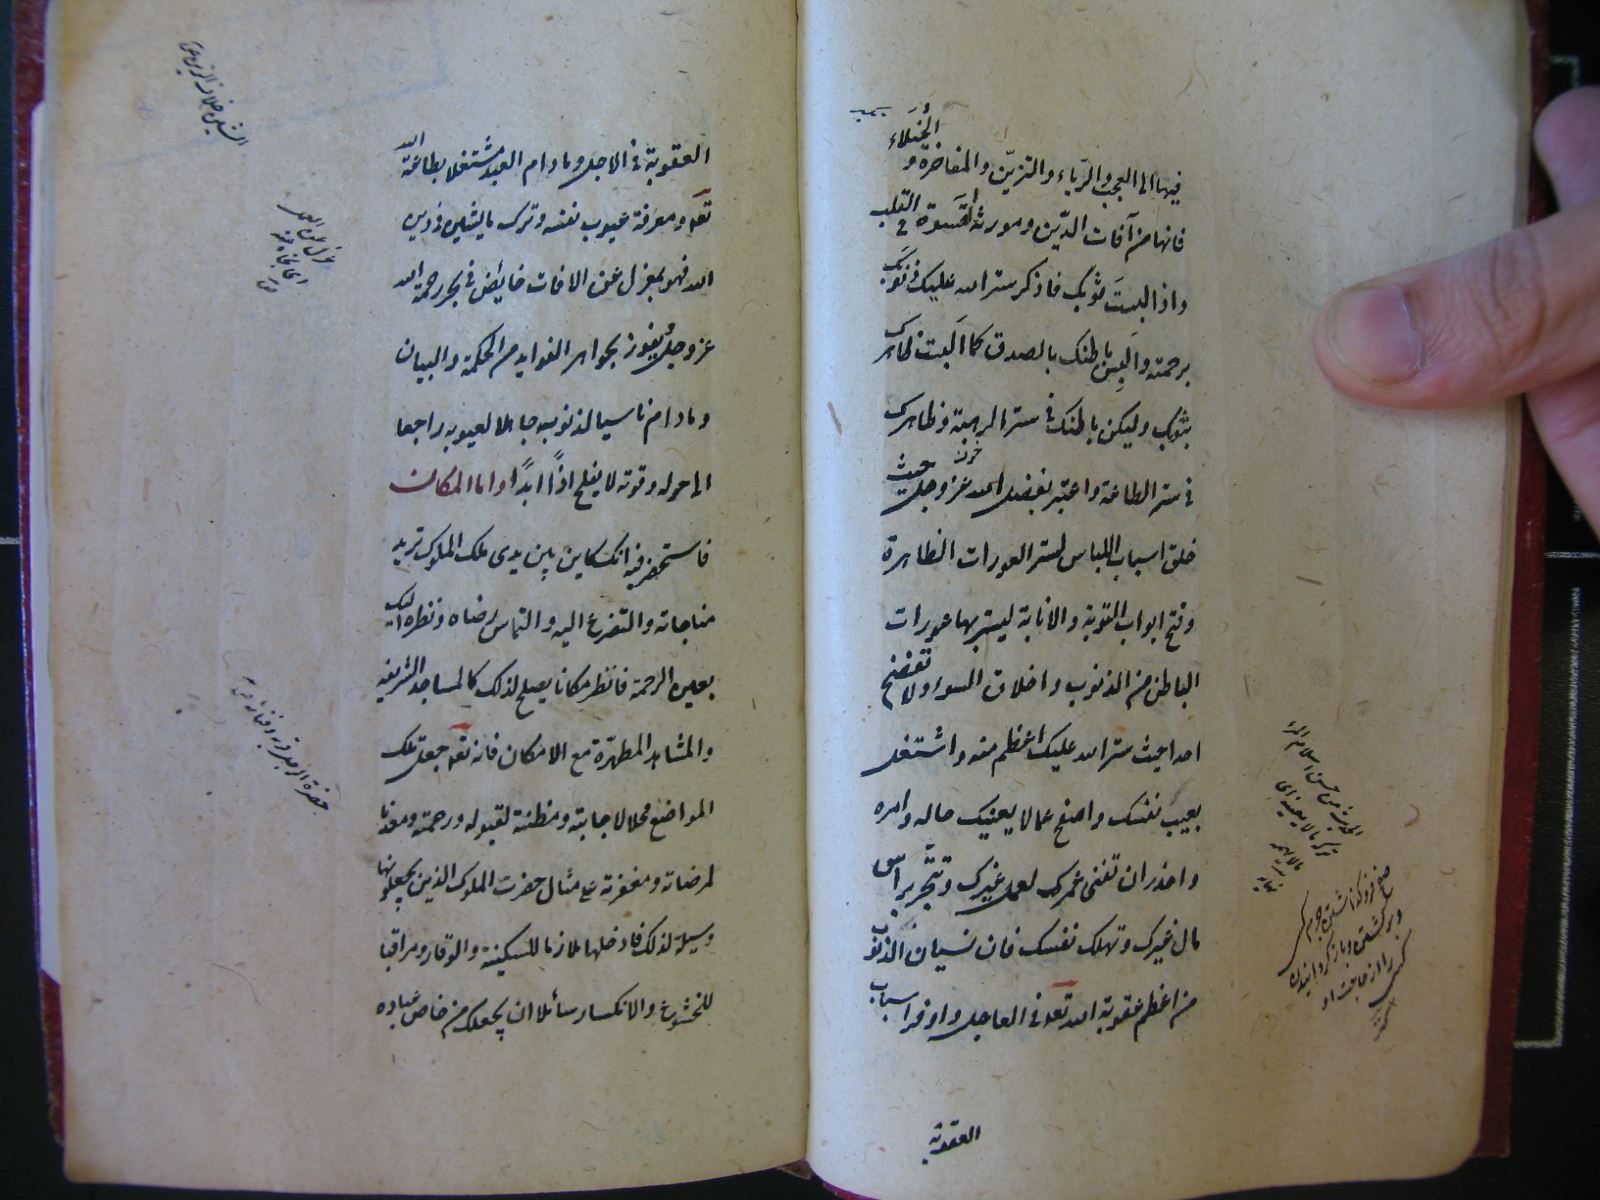 فيها الى العجب والرّياء والتزيّن والمفاخرة و الخيلاء
فانها من آفات الدّين ومورثة القسوة في القلب
واذا لبستَ ثوبك فاذكر ستر الله عليك ذنوبك
برحمته وألبس باطنك بالصدق كما ألبست ظاهرك
بثوبك وليكن باطنك في ستر الرهبة وظاهرك
في ستر الطاعة واعتبر بفضل الله عز وجل حيث
خلق اسباب اللباس لستر العورات الظاهرة
وفتح ابواب التوبة والانابة ليستر بها عورات
الباطن من الذنوب واخلاق السوء ولا تفضح
احدا حيث ستر الله عليك اعظم منه واشتغل
بعيب نفسك واصفح عما لا يعنيك حاله وامره
واحذر ان تفنى عمرك لعمل غيرك وتتّجر براس
مال غيرك وتهلك نفسك فان نسيان الذنوب
من اعظم عقوبة الله تعه في العاجل واوفر اسباب
العقوبة
العقوبة في الاجل وما دام العبد مشتغلا بطاعة الله
تعه ومعرفة عيوب نفسه وترك ما يشين في دين
الله فهو بمعزل عن الافات خائض في بحر رحمة الله
عز وجل يفوز بجواهر الفوايد من الحكمة والبيان
وما دام ناسيا لذنوبه جاهلا لعيوبه راجعا
الى حوله وقوته لا يفلح اذاً ابداً واما المكان
فاستحضر فيه انك كاين بين يدى ملك الملوك تريد
مناجاته والتضرع اليه والتماس رضاه ونظره اليك
بعين الرحمة فانظر مكانا يصلح لذلك كالمساجد الشريفة
والمشاهد المطهرّة مع الامكان فانه تعه جعل تلك
المواضع محلا لاجابته ومظنة لقبوله ورحمته ومعدنا
لمرضاته ومغفرته على مثال حضرت الملوك الذين يجعلونها
وسيلة لذلك فادخلها ملازما للسكينة والوقار ومراقبا
للخشوع والانكسار سائلا ان يجعلك من خاص عباده